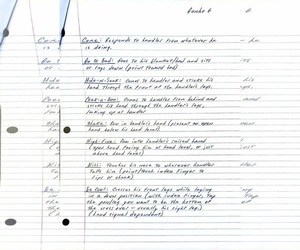 Rambo 6
Come: Responds to handler from whatever he is doing.
Go to Bed: Goes to his blanket/bed and sits or lays down (point toward bed)
Hide-n-Seek: Comes to handler and sticks his head through the front of the handler's legs.
Peek-a-Boo: Comes to handler from behind and sticks his head through the handler's legs, looking up at handler
Shake: Paw in handler's hand (present an open hand below his head level)
High-Five: Paw into handler's raised hand (open hand facing him at head level, or just above head level)
Kiss: Touches his nose to whatever handler tells him (point/touch index finger to lips or cheek)
Crosses his front legs while laying in a down position (with index finger, tap the paw/leg you want to be the bottom of the cross over - usually his right leg)
(hand signal dependent)